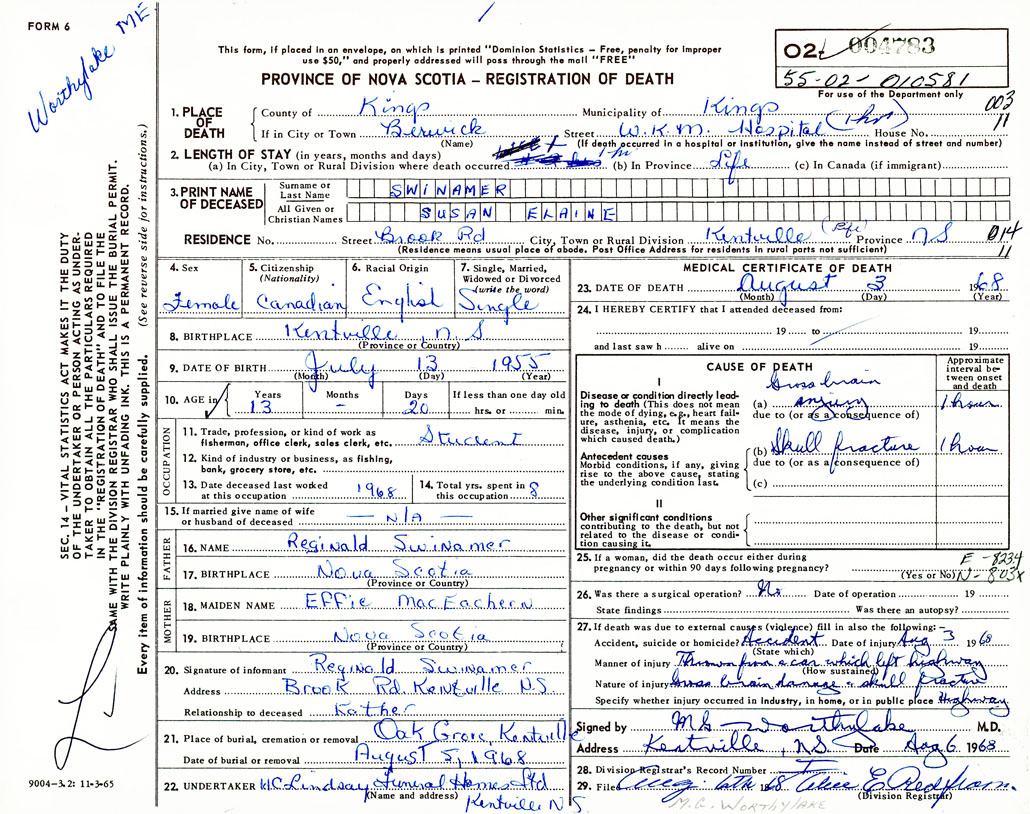 FORM 6
Worthylake ME
This form, if placed in an envelope, on which is printed "Dominion Statistics – Free, penalty for improper
use $50," and properly addressed will pass through the mail "FREE"
PROVINCE OF NOVA SCOTIA – REGISTRATION OF DEATH
02- 004783
55-02-010581
For use of the Department only
003
11
1. PLACE OF DEATH
County of Kings Municipality of Kings
If in City or Town Berwick Street W.K.M. Hospital (1 hr) House No.
(Name) (If death occurred in a hospital or institution, give the name instead of street and number)
2. LENGTH OF STAY (in years, months and days)
(a) In City, Town or Rural Division where death occurred 1 hr (b) In Province Life (c) In Canada (if immigrant)
3. PRINT NAME OF DECEASED
Surname or Last Name SWINAMER
All Given or Christian Names SUSAN ELAINE
RESIDENCE No. Street Brook Rd City, Town or Rural Division Kentville (Life) Province NS
014
11
(Residence means usual place of abode. Post Office Address for residents in rural parts not sufficient)
4. Sex Female
5. Citizenship (Nationality) Canadian
6. Racial Origin English
7. Single, Married, Widowed or Divorced (write the word) Single
8. BIRTHPLACE Kentville, N.S
(Province or Country)
9. DATE OF BIRTH July 13 1955
(Month) (Day) (Year)
10. AGE in Years 13 Months – Days 20 If less than one day old hrs. or min.
OCCUPATION
11. Trade, profession, or kind of work as fisherman, office clerk, sales clerk, etc. Student
12. Kind of industry or business, as fishing, bank, grocery store, etc.
13. Date deceased last worked at this occupation 1968
14. Total yrs. spent in this occupation 8
15. If married give name of wife or husband of deceased — N/A —
FATHER
16. NAME Reginald Swinamer
17. BIRTHPLACE Nova Scotia
(Province or Country)
MOTHER
18. MAIDEN NAME Effie MacEachern
19. BIRTHPLACE Nova Scotia
(Province or Country)
20. Signature of informant Reginald Swinamer
Address Brook Rd. Kentville NS
Relationship to deceased Father
21. Place of burial, cremation or removal Oak Grove, Kentville
Date of burial or removal August 5, 1968
22. UNDERTAKER W.C. Lindsay Funeral Homes Ltd
(Name and address) Kentville N S
MEDICAL CERTIFICATE OF DEATH
23. DATE OF DEATH August 3 1968
(Month) (Day) (Year)
24. I HEREBY CERTIFY that I attended deceased from:
19 to 19
and last saw h alive on 19
CAUSE OF DEATH
Approximate interval between onset and death
I
Disease or condition directly leading to death (This does not mean the mode of dying, e.g., heart failure, asthenia, etc. It means the disease, injury, or complication which caused death.)
(a) Gross brain injury 1 hour
due to (or as a consequence of)
Antecedent causes
Morbid conditions, if any, giving rise to the above cause, stating the underlying condition last.
(b) Skull fracture 1 hour
due to (or as a consequence of)
(c)
II
Other significant conditions
contributing to the death, but not related to the disease or condition causing it.
25. If a woman, did the death occur either during pregnancy or within 90 days following pregnancy?
(Yes or No)
E-8234
N-803x
26. Was there a surgical operation? No Date of operation 19
State findings Was there an autopsy?
27. If death was due to external causes (violence) fill in also the following:–
Accident, suicide or homicide? Accident Date of injury Aug 3 1968
(State which)
Manner of injury Thrown from a car which left highway
(How sustained)
Nature of injury Gross brain damage & skull fracture
Specify whether injury occurred in Industry, in home, or in public place Highway
Signed by M G Worthylake M.D.
Address Kentville, N.S. Date Aug 6 1968
28. Division Registrar's Record Number
29. Filed Aug 6th 1968 Alice E.
(Division Registrar)
M.G. WORTHYLAKE
SEC. 14 – VITAL STATISTICS ACT MAKES IT THE DUTY
OF THE UNDERTAKER OR PERSON ACTING AS UNDER-
TAKER TO OBTAIN ALL THE PARTICULARS REQUIRED
IN THE "REGISTRATION OF DEATH" AND TO FILE THE
SAME WITH THE DIVISION REGISTRAR WHO SHALL ISSUE THE BURIAL PERMIT.
WRITE PLAINLY WITH UNFADING INK. THIS IS A PERMANENT RECORD.
Every item of information should be carefully supplied. (See reverse side for instructions.)
9004-3.2: 11-3-65